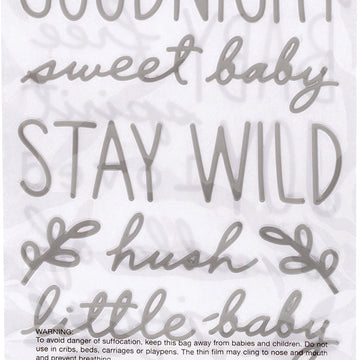 GOODNIGHT
sweet baby
STAY WILD
hush
little baby
WARNING:
To avoid danger of suffocation, keep this bag away from babies and children. Do not
use in cribs, beds, carriages or playpens. The thin film may cling to nose and mouth
and prevent breathing.